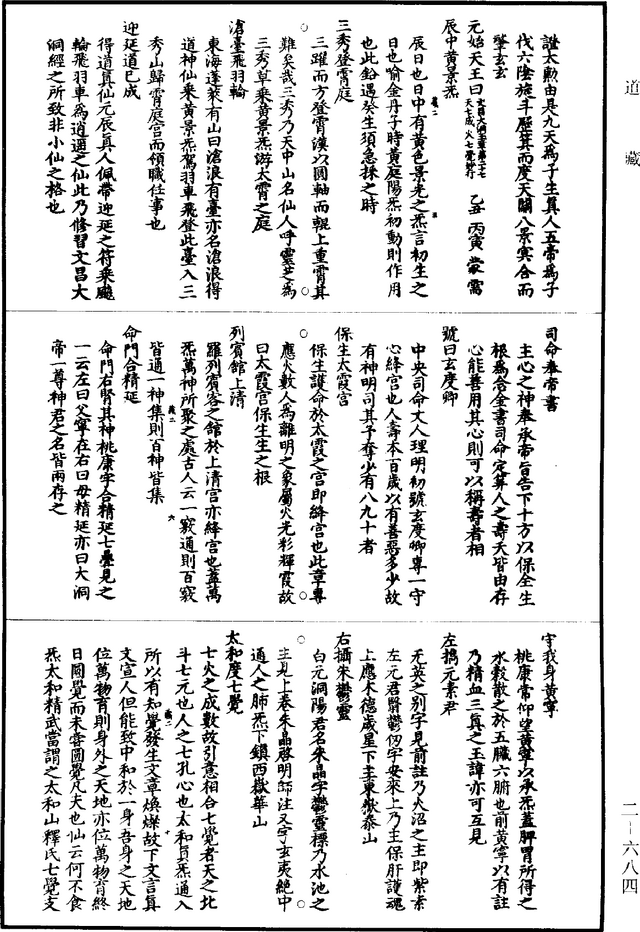 道藏
證太勲由是九天爲子生真人五帝爲子
伐六陰旋斗歷箕而度天關八景冥合而
肇玄玄
元始天王曰 文昌大洞玉章第二十七 天七成火七覺妙行 乙丑 丙寅 蒙 需
辰中黃景炁
辰日也日中有黃色景光之炁言初生之
日也喻金丹子時黃庭陽炁初動則作用
也此鉛遇癸生須急採之時
三秀登霄庭
三躍而方登霄漠以圓軸而輥上重霄其
難矣哉三秀乃天中山名仙人呼靈芝爲
三秀草乘黃景炁游太霄之庭
滄臺飛羽輪
東海蓬萊有山曰滄浪有臺亦名滄浪得
道神仙乘黃景炁駕羽車飛登此臺入三
秀山歸霄庭宮而領職任事也
迎延道已成
得道真仙元辰真人佩帶迎延之符乘飈
輪飛羽車爲逍遥之仙此乃修習文昌大
洞經之所致非小仙之格也
司命奉帝書
主心之神奉承帝旨告下十方以保全生
根爲念金書司命定算人之壽夭皆由存
心能善用其心則可以稱壽者相
號曰玄度卿
中央司命丈人理明初號玄度卿專一守
心絳宮也人壽本百歲以有善惡多少故
有神明司其予奪少有八九十者
保生太霞宮
保生護命於太霞之宮即絳宮也此章專
應火數人爲離明之象屬火光彩輝霞故
曰太霞宮保生生之根
列賓館上清
羅列賓客之館於上清宮亦絳宮也蓋萬
炁萬神所聚之處古人云一竅通則百竅
皆通一神集則百神皆集
命門合精延
命門右腎其神桃康字合精延七疊見之
一云左曰父寧在右曰母精延亦曰大洞
帝一尊神君之名皆兩存之
守我身黃寧
桃康常仰望黃寧以承炁蓋脾胃所得之
水穀散之於五臟六腑也前黃寧以有註
乃精血三真之王諱亦可互見
左攜元素君
无英之别字見前註乃火沼之主即紫素
左元君諱鬱仭字安來上乃主保肝護魂
上應木德歲星下主東嶽泰山
右攝朱鬱靈
白元洞陽君名朱晶字鬱靈標乃水池之
主見上卷朱晶啓明郎注又字玄夷絶中
通人之肺炁下鎮西嶽華山
太和度七覺
七火之成數故引意相合七覺者天之北
斗七元也人之七孔心也太和貟炁通入
所以有知覺發生文章煥燦故下文言真
文宣人但能致中和於一身吾身之天地
位萬物育則身外之天地亦位萬物育終
日圓覺而未甞圓覺凡夫也仙云何不食
炁太和精武當謂之太和山釋氏七覺支
二-六八四